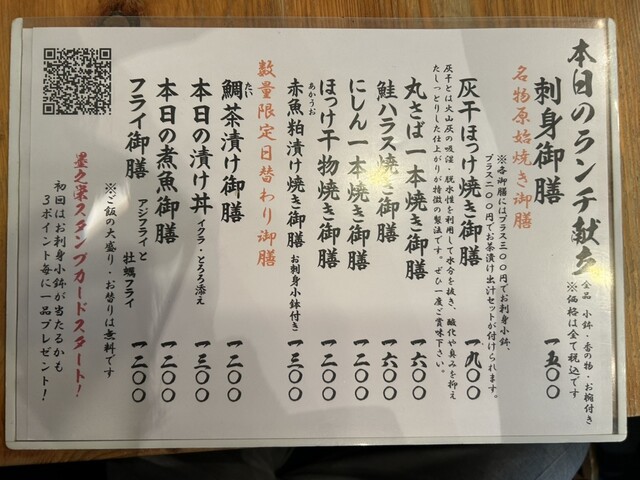 本日のランチ献立
全品 小鉢・香の物・お椀付き
※価格は全て税込です
刺身御膳 一五〇〇
名物原始焼き御膳
※各御膳にはプラス三〇〇円でお刺身小鉢、
プラス二〇〇円でお茶漬け出汁セットが付けられます。
灰干ほっけ焼き御膳 一九〇〇
灰干とは火山灰の吸湿・脱水性を利用して水分を抜き、酸化や臭みを抑え
たしっとりした仕上がりが特徴の製法です。ぜひ一度ご賞味下さい。
丸さば一本焼き御膳 一六〇〇
鮭ハラス焼き御膳 一六〇〇
にしん一本焼き御膳 一二〇〇
ほっけ干物焼き御膳 一二〇〇
赤魚粕漬け焼き御膳 お刺身小鉢付き 一三〇〇
あかうお
数量限定日替わり御膳
鯛茶漬け御膳 一二〇〇
たい
本日の漬け丼 イクラ・とろろ添え 一三〇〇
本日の煮魚御膳 一二〇〇
フライ御膳 アジフライと牡蠣フライ 一二〇〇
※ご飯の大盛り・お替りは無料です
墨之栄スタンプカードスタート!
初回はお刺身小鉢が当たるかも
3ポイント毎に一品プレゼント!